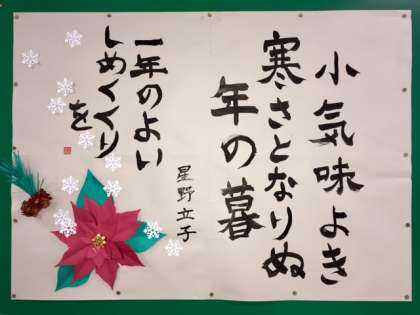 小気味よき
寒さとなりぬ
年の暮
星野立子
一年のよい
しめくくり
を